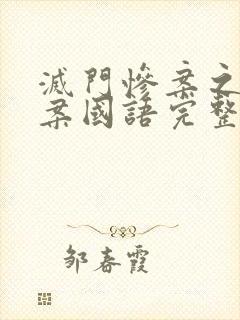 滅門慘案之
案國語完整
邹春霞